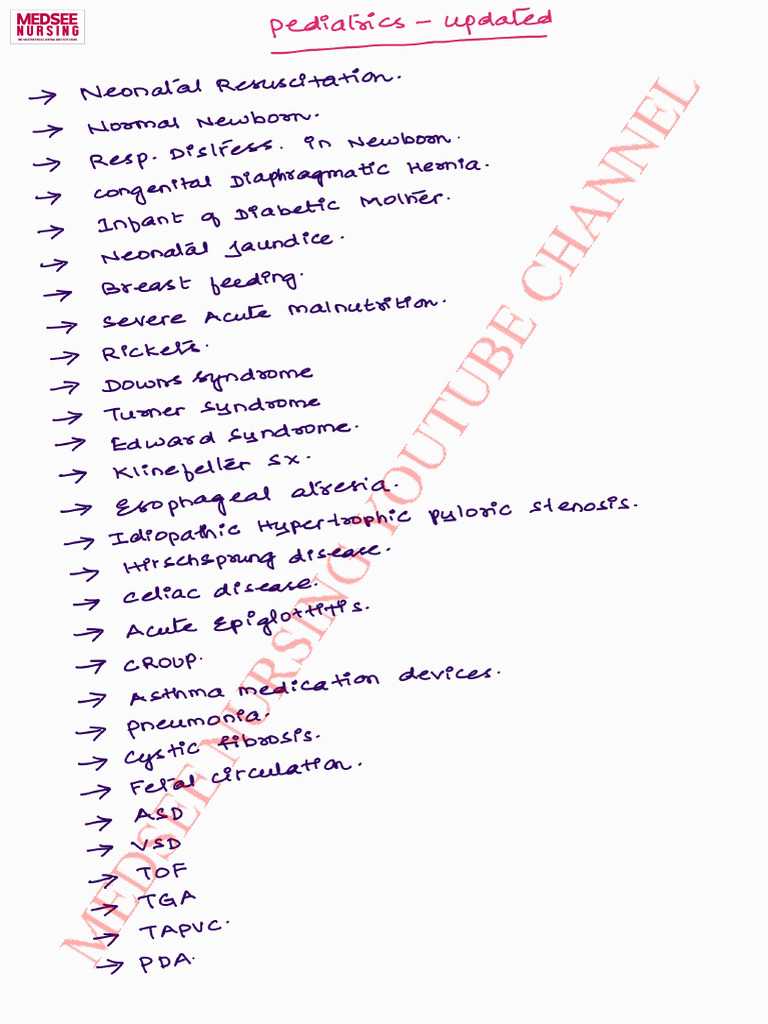 MEDSEE
NURSING
Pediatrics - updated
→ Neonatal Resuscitation.
→ Normal Newborn.
→ Resp. Distress. in Newborn.
→ Congenital Diaphragmatic Hernia.
→ Infant of Diabetic Mother.
→ Neonatal Jaundice.
→ Breast feeding.
→ Severe Acute Malnutrition.
→ Rickets.
→ Downs syndrome
→ Turner syndrome
→ Edward syndrome.
→ Klinefelter sx.
→ Esophageal atresia.
→ Idiopathic Hypertrophic pyloric stenosis.
→ Hirschsprung disease.
→ Celiac disease.
→ Acute Epiglottitis.
→ CROUP.
→ Asthma medication devices.
→ pneumonia.
→ Cystic fibrosis.
→ Fetal circulation.
→ ASD
→ VSD
→ TOF
→ TGA
→ TAPVC.
→ PDA.
MEDSEE NURSING YOUTUBE CHANNEL